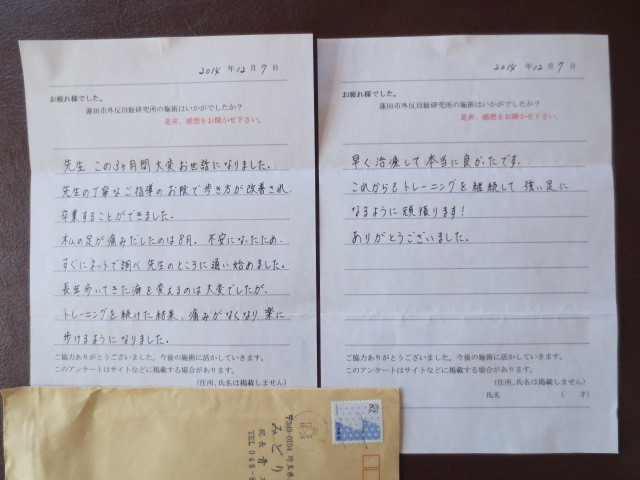 2014 年 12 月 7 日
お疲れ様でした。
蓮田市外反母趾研究所の施術はいかがでしたか?
是非、感想をお聞かせ下さい。
先生 この3ヶ月間大変お世話になりました。
先生の丁寧なご指導のお陰で歩き方が改善され、
卒業することができました。
私の足が痛みだしたのは8月。不安になったため、
すぐにネットで調べ先生のところに通い始めました。
長年歩いてきた癖を変えるのは大変でしたが、
トレーニングを続けた結果、痛みがなくなり楽に
歩けるようになりました。
ご協力ありがとうございました。今後の施術に活かしていきます。
このアンケートはサイトなどに掲載する場合があります。
(住所、氏名は掲載しません)
2014 年 12 月 7 日
お疲れ様でした。
蓮田市外反母趾研究所の施術はいかがでしたか?
是非、感想をお聞かせ下さい。
早く治療して本当に良かったです。
これからもトレーニングを継続して 強い足に
なるように頑張ります!
ありがとうございました。
ご協力ありがとうございました。今後の施術に活かしていきます。
このアンケートはサイトなどに掲載する場合があります。
(住所、氏名は掲載しません)
氏名 ( 才)
82
〒349-0104 埼玉県
みどり
院長 青
TEL 048-